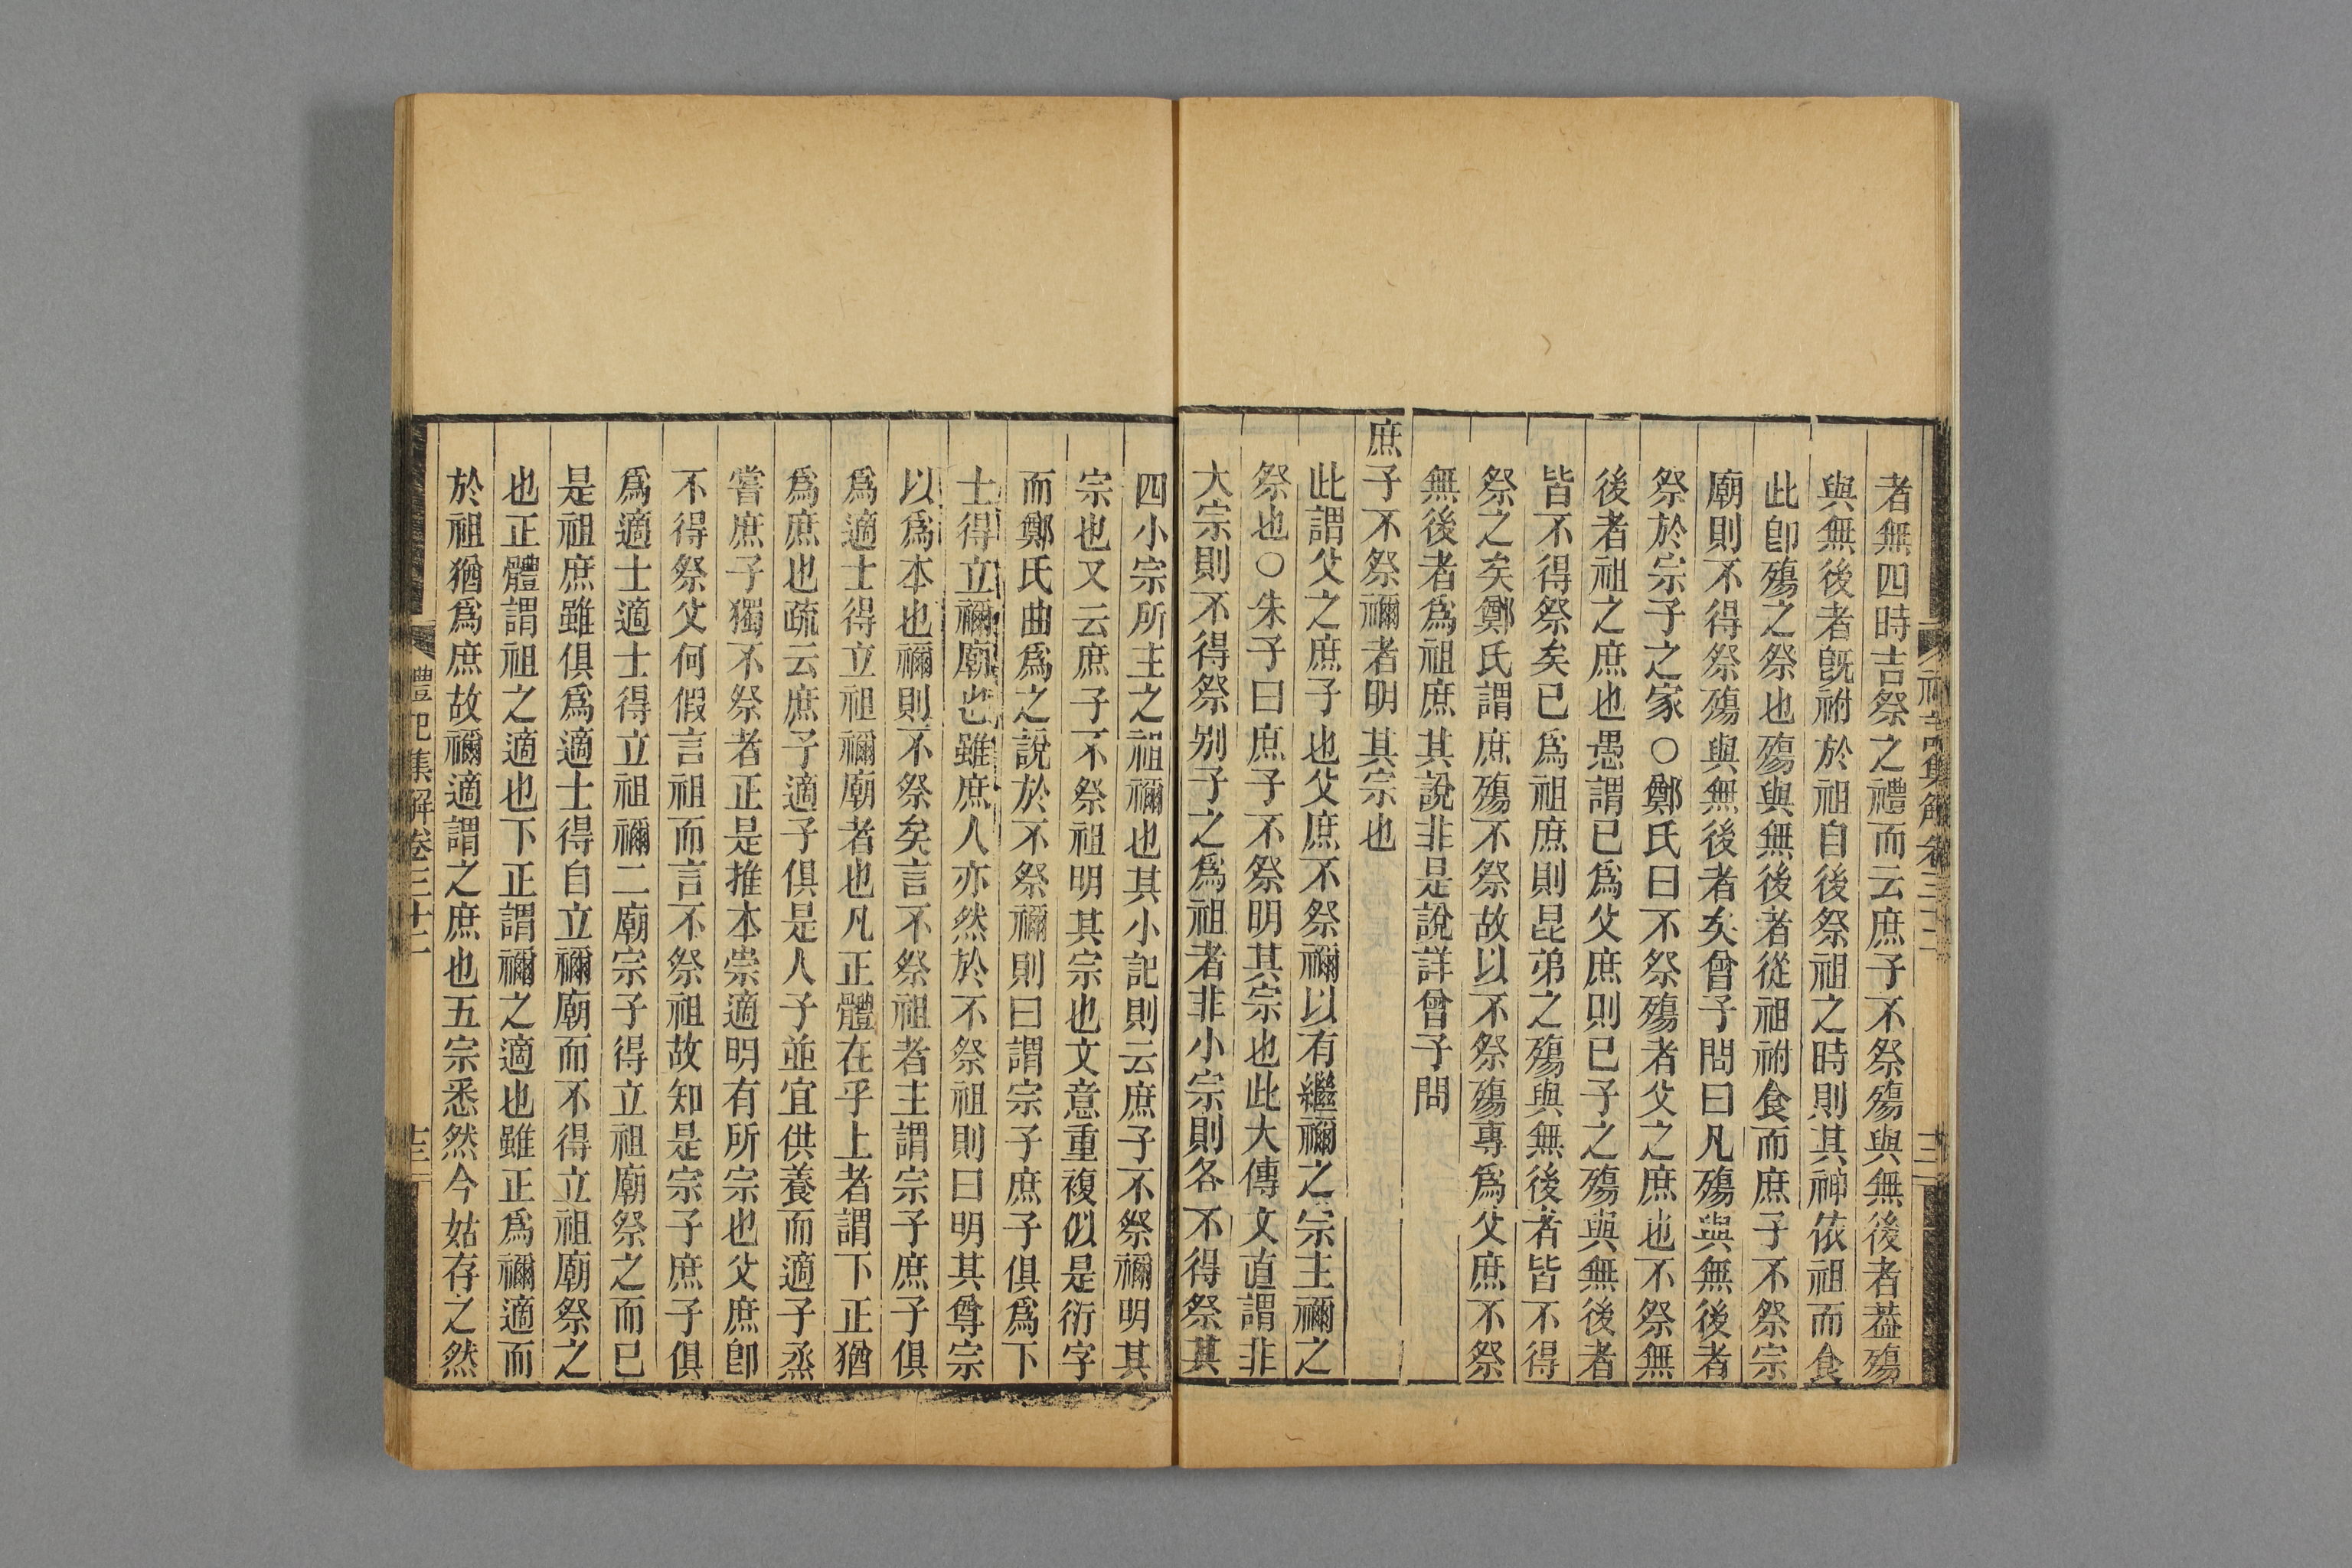 者無四時吉祭之禮而云庶子不祭殤與無後者葢殤
與無後者旣祔於祖自後祭祖之時則其神依祖而食
此卽殤之祭也殤與無後者從祖祔食而庶子不祭宗
廟則不得祭殤與無後者矣曾子問曰凡殤與無後者
祭於宗子之家○鄭氏曰不祭殤者父之庶也不祭無
後者祖之庶也愚謂已爲父庶則已子之殤與無後者
皆不得祭矣已爲祖庶則昆弟之殤與無後者皆不得
祭之矣鄭氏謂庶殤不祭故以不祭殤專爲父庶不祭
無後者爲祖庶其說非是說詳曾子問
庶子不祭禰者明其宗也
此謂父之庶子也父庶不祭禰以有繼禰之宗主禰之
祭也○朱子曰庶子不祭明其宗也此大傳文直謂非
大宗則不得祭別子之爲祖者非小宗則各不得祭其
四小宗所主之祖禰也其小記則云庶子不祭禰明其
宗也又云庶子不祭祖明其宗也文意重複似是衍字
而鄭氏曲爲之說於不祭禰則曰謂宗子庶子俱爲下
士得立禰廟也雖庶人亦然於不祭祖則曰明其尊宗
以爲本也禰則不祭矣言不祭祖者主謂宗子庶子俱
爲適士得立祖禰廟者也凡正體在乎上者謂下正猶
爲庶也疏云庶子適子俱是人子並宜供養而適子烝
嘗庶子獨不祭者正是推本崇適明有所宗也父庶卽
不得祭父何假言祖而言不祭祖故知是宗子庶子俱
爲適士適士得立祖禰二廟宗子得立祖廟祭之而已
是祖庶雖俱爲適士得自立禰廟而不得立祖廟祭之
也正體謂祖之適也下正謂禰之適也雖正爲禰適而
於祖猶爲庶故禰適謂之庶也五宗悉然今姑存之然
禮記集解卷三十二
十三